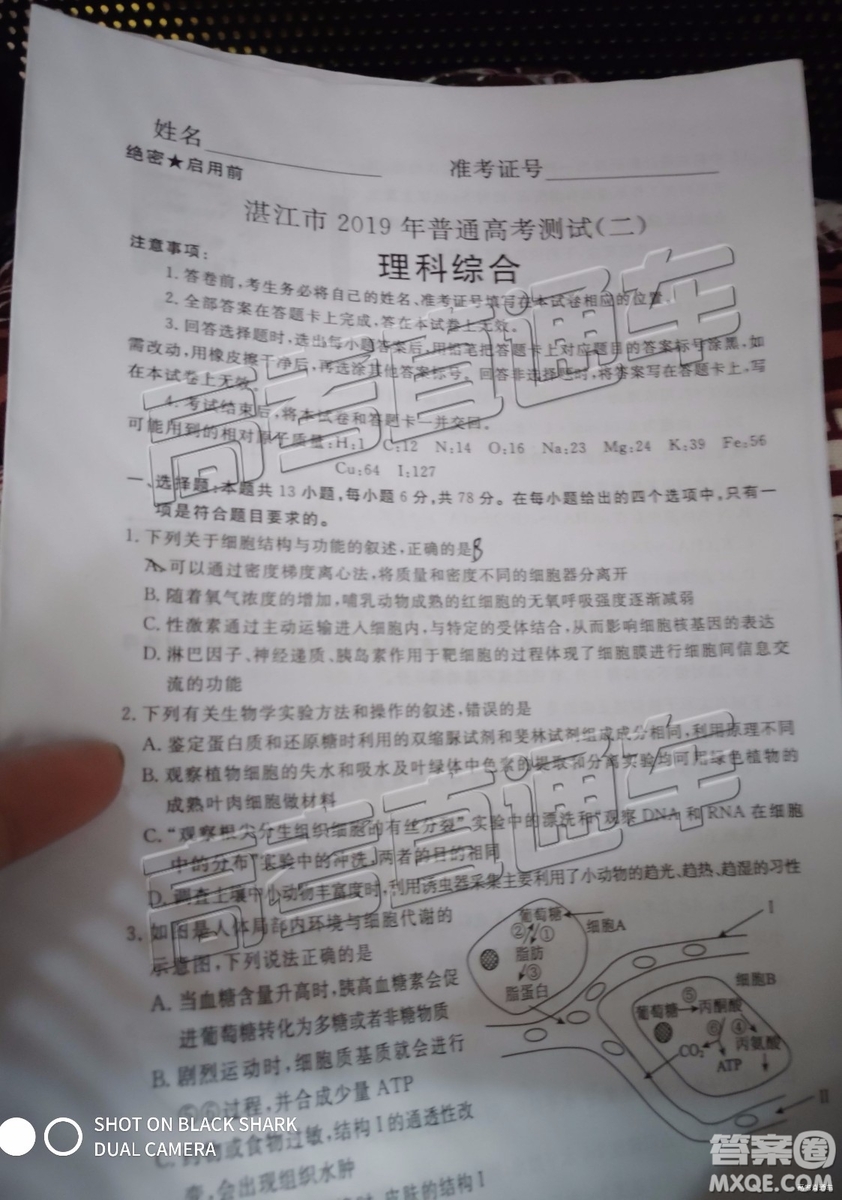 姓名
准考证号
绝密★启用前
湛江市 2019 年普通高考测试(二)
理科综合
注意事项:
1. 答卷前,考生务必将自己的姓名、准考证号填写在本试卷相应的位置。
2. 全部答案在答题卡上完成,答在本试卷上无效。
3. 回答选择题时,选出每小题答案后,用铅笔把答题卡上对应题目的答案标号涂黑,如
需改动,用橡皮擦干净后,再选涂其他答案标号。回答非选择题时,将答案写在答题卡上,写
在本试卷上无效。
4. 考试结束后,将本试卷和答题卡一并交回。
可能用到的相对原子质量:H:1 C:12 N:14 O:16 Na:23 Mg:24 K:39 Fe:56
Cu:64 I:127
一、选择题:本题共 13 小题,每小题 6 分,共 78 分。在每小题给出的四个选项中,只有一
项是符合题目要求的。
1. 下列关于细胞结构与功能的叙述,正确的是B
A. 可以通过密度梯度离心法,将质量和密度不同的细胞器分离开
B. 随着氧气浓度的增加,哺乳动物成熟的红细胞的无氧呼吸强度逐渐减弱
C. 性激素通过主动运输进入细胞内,与特定的受体结合,从而影响细胞核基因的表达
D. 淋巴因子、神经递质、胰岛素作用于靶细胞的过程体现了细胞膜进行细胞间信息交
流的功能
2. 下列有关生物学实验方法和操作的叙述,错误的是
A. 鉴定蛋白质和还原糖时利用的双缩脲试剂和斐林试剂组成成分相同,利用原理不同
B. 观察植物细胞的失水和吸水及叶绿体中色素的提取和分离实验均可用绿色植物的
成熟叶肉细胞做材料
C. “观察根尖分生组织细胞的有丝分裂”实验中的漂洗和“观察 DNA 和 RNA 在细胞
中的分布”实验中的冲洗,两者的目的相同
D. 调查土壤中小动物丰富度时,利用诱虫器采集主要利用了小动物的趋光、趋热、趋湿的习性
3. 如图是人体局部内环境与细胞代谢的
示意图,下列说法正确的是
A. 当血糖含量升高时,胰高血糖素会促
进葡萄糖转化为多糖或者非糖物质
B. 剧烈运动时,细胞质基质就会进行
⑤⑥过程,并合成少量 ATP
C. 药物或食物过敏,结构 I 的通透性改
变,会出现组织水肿
皮肤的结构 I
葡萄糖
② ①
脂肪
③
脂蛋白
细胞A
I
细胞B
⑤
葡萄糖 丙酮酸
⑥ ④
CO₂
ATP
丙氨酸
II
高考直通车
高考直通车
SHOT ON BLACK SHARK
DUAL CAMERA
答案圈
MXQE.COM